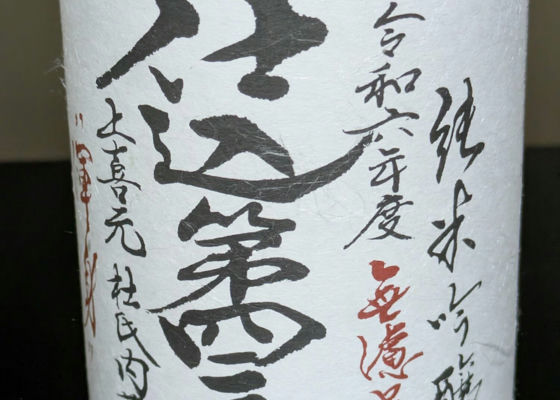 純米吟醸
令和六年度
無濾
仕込第四二
上喜元 杜氏内
"渾身"